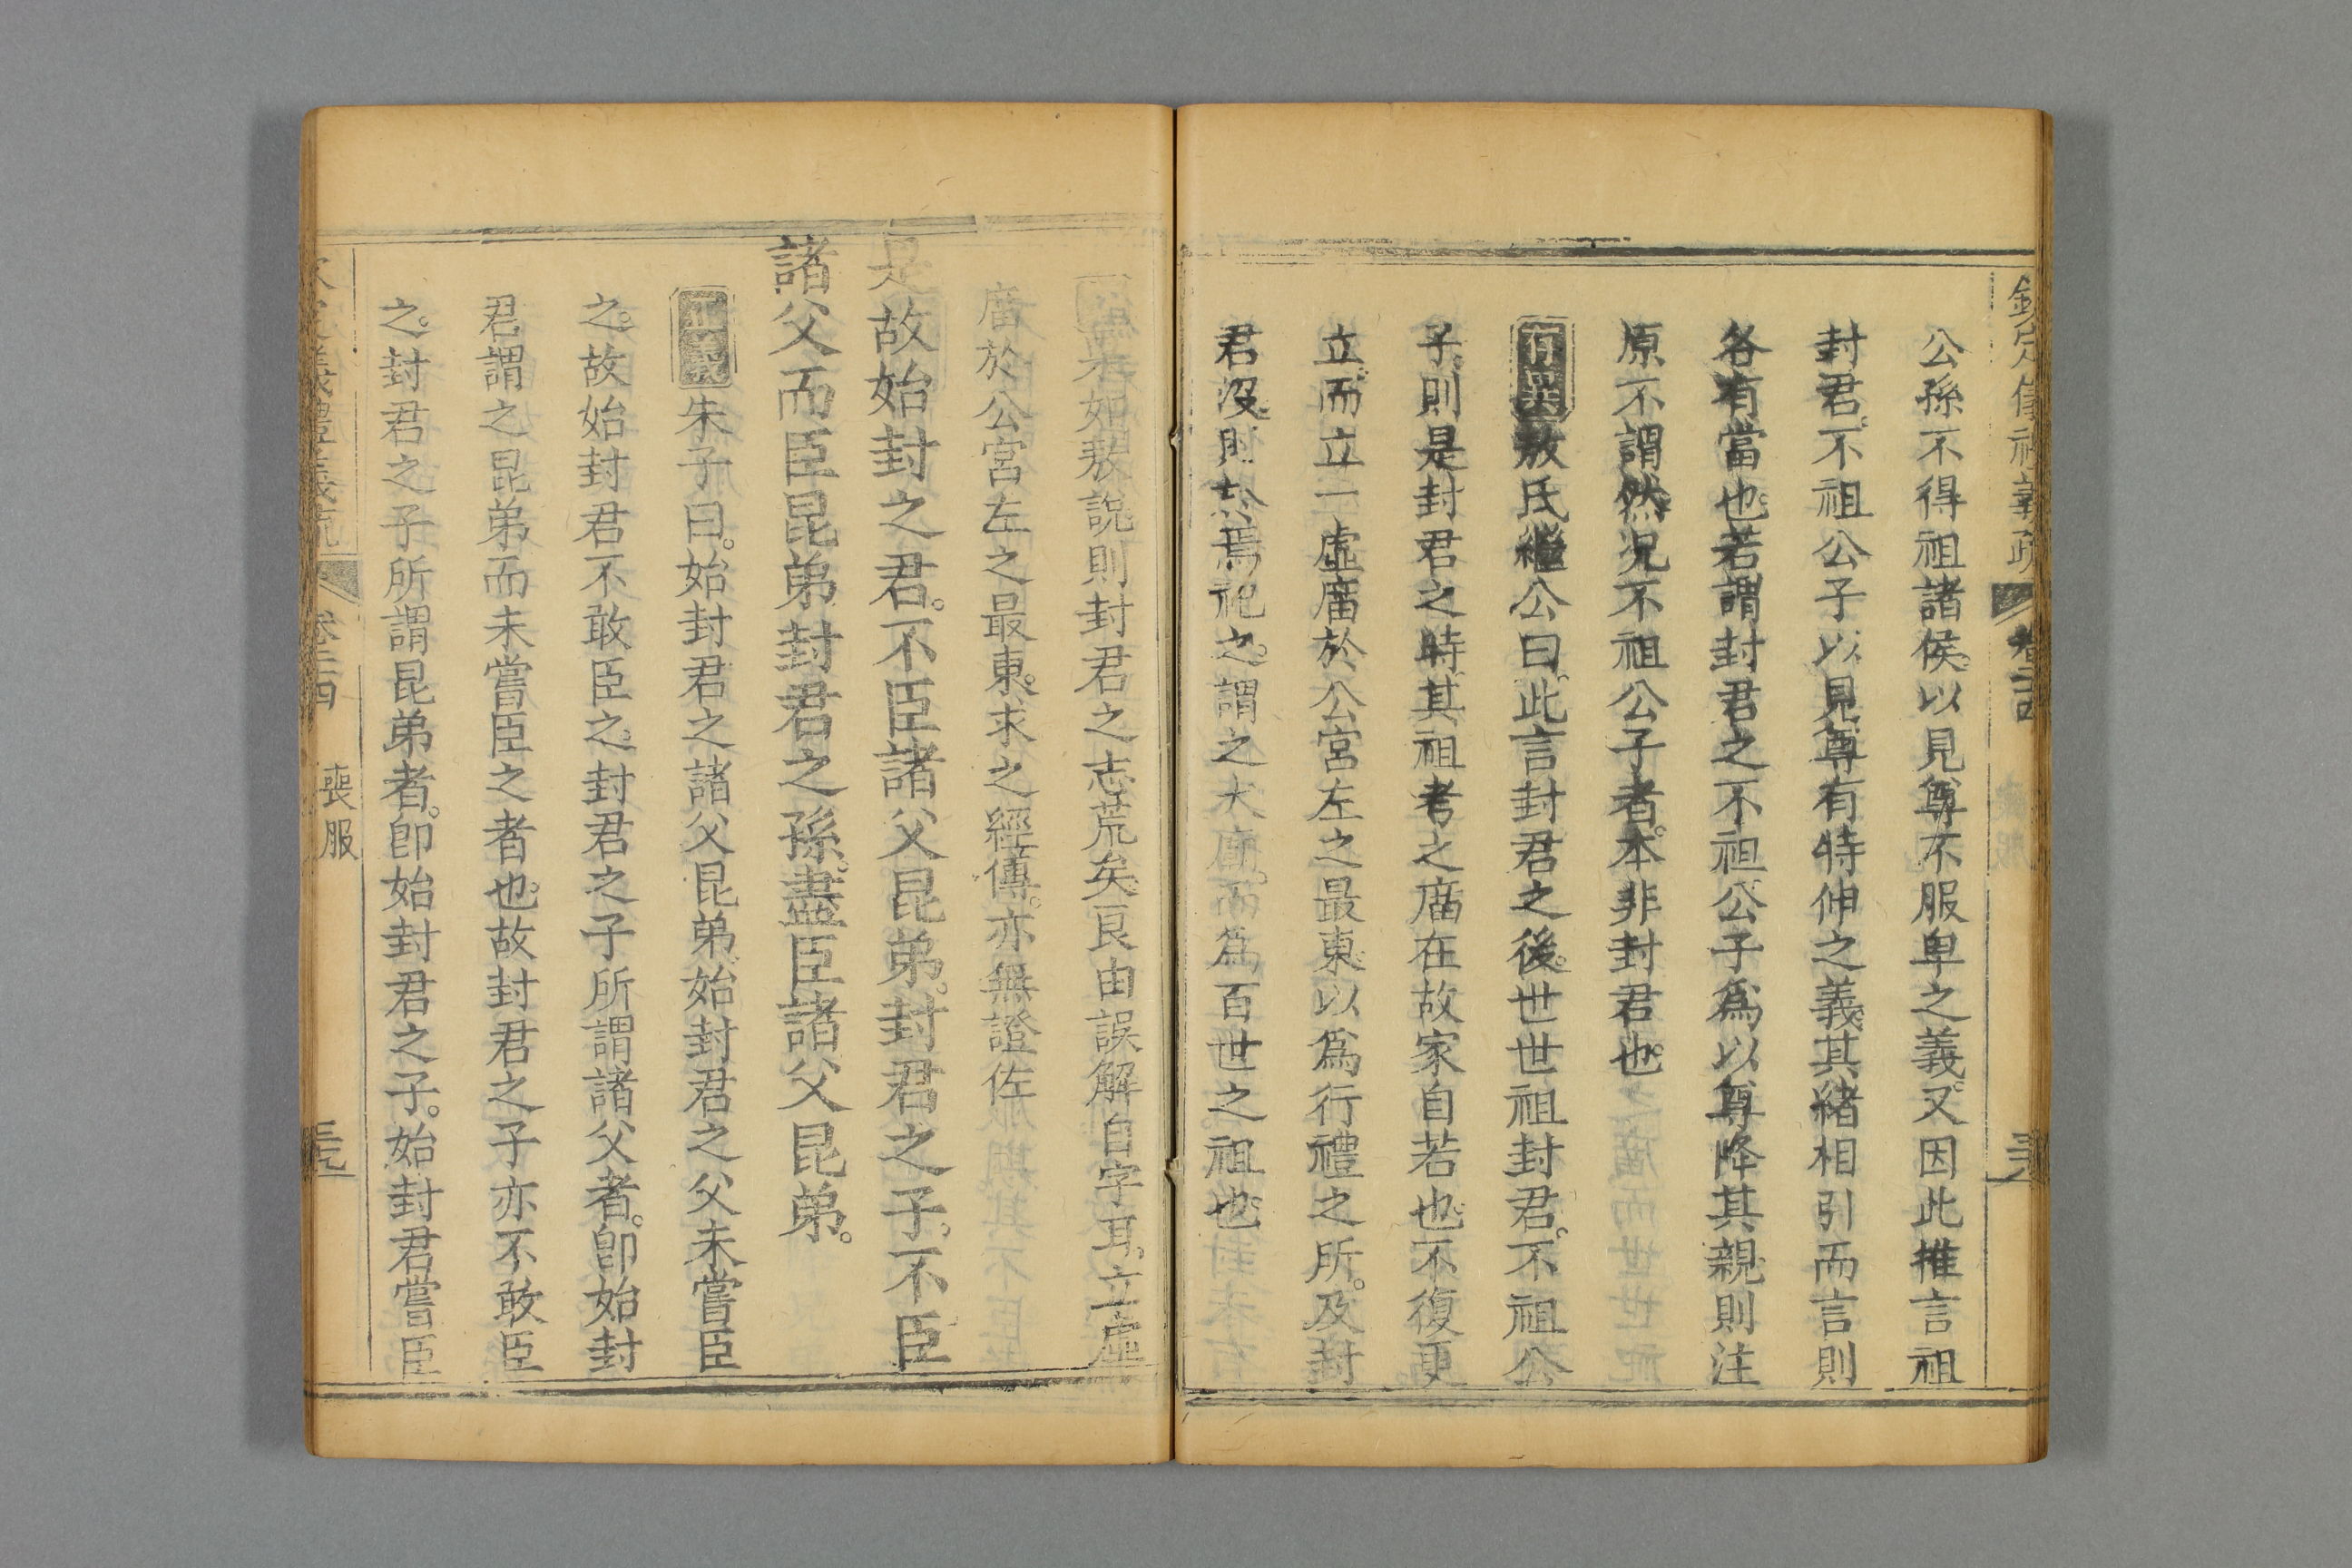 欽定儀禮義疏 卷二十四
公孫不得祖諸侯。以見尊不服卑之義。又因此推言祖
封君。不祖公子以見尊有特伸之義。其緒相引而言則
各有當也。若謂封君之不祖公子爲以尊降其親則注
原不謂然。況不祖公子者。本非封君也。
敖氏繼公曰。此言封君之後。世世祖封君。不祖公
子。則是封君之時。其祖考之廟在故家自若也。不復更
立。而立一虛廟於公宮左之最東。以爲行禮之所。及封
君沒。則於焉祀之。謂之大廟。而爲百世之祖也。
如敖說則封君之志荒矣。良由誤解自字耳。立虛
廟於公宮左之最東。求之經傳。亦無證佐
是故始封之君。不臣諸父昆弟。封君之子。不臣
諸父而臣昆弟。封君之孫。盡臣諸父昆弟。
正義朱子曰。始封君之諸父昆弟。始封君之父未嘗臣
之。故始封君不敢臣之。封君之子所謂諸父者。卽始封
君謂之昆弟而未嘗臣之者也。故封君之子亦不敢臣
之。封君之子所謂昆弟者。卽始封君之子。始封君嘗臣
儀禮義疏 卷二十四 喪服